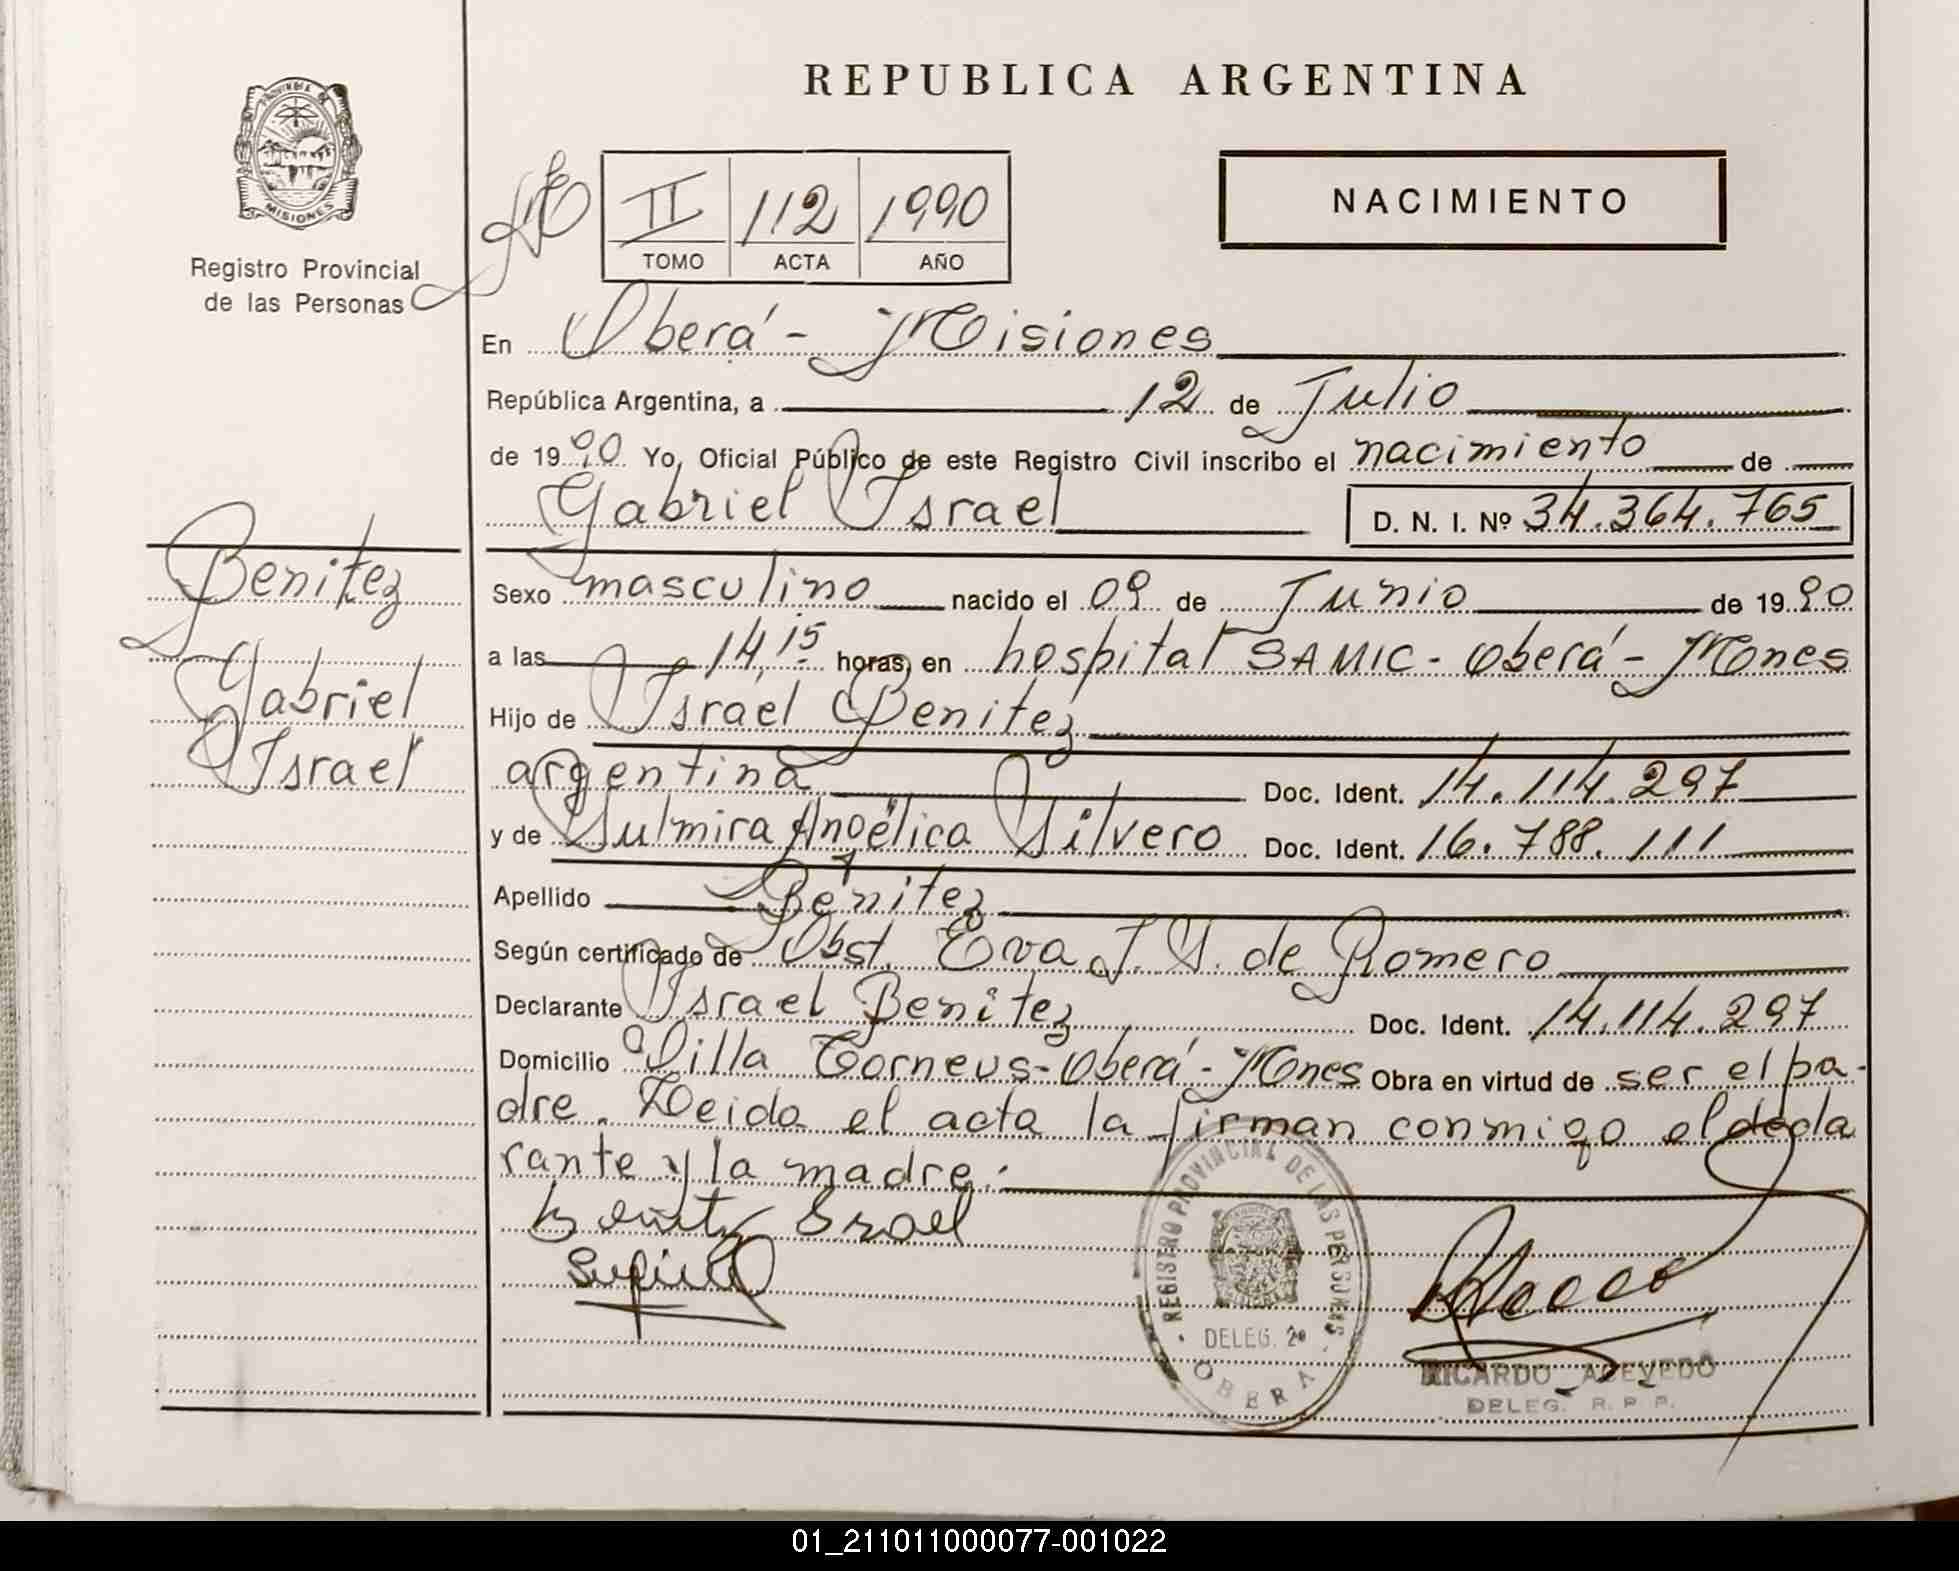 REPUBLICA ARGENTINA
PROVINCIA DE
MISIONES
Registro Provincial
de las Personas
II 112 1990
TOMO ACTA AÑO
NACIMIENTO
En Oberá - Misiones
República Argentina, a 12 de Julio
de 1990 Yo, Oficial Público de este Registro Civil inscribo el nacimiento de
Gabriel Israel D. N. I. Nº 34.364.765
Benitez
Gabriel
Israel
Sexo masculino nacido el 09 de Junio de 1990
a las 14,15 horas, en hospital SAMIC - Oberá - Mones
Hijo de Israel Benitez
argentina Doc. Ident. 14.114.297
y de Sulmira Angélica Silvero Doc. Ident. 16.788.111
Apellido Benitez
Según certificado de Obst. Eva J. S. de Romero
Declarante Israel Benitez Doc. Ident. 14.114.297
Domicilio Villa Torneus - Oberá - Mones Obra en virtud de ser el pa-
dre. Leida el acta la firman conmigo el decla
rante y la madre.
Benitez Israel
REGISTRO PROVINCIAL DE LAS PERSONAS
DELEG. 2ª
OBERA
RICARDO ACEVEDO
DELEG. R. P. P.
01_211011000077-001022